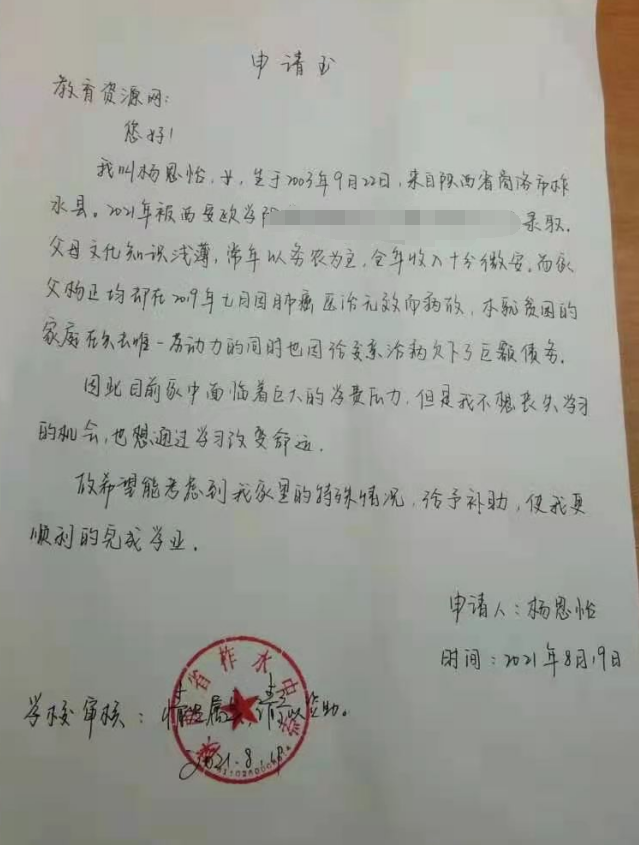 申请书
教育资源网:
您好!
我叫杨恩怡,女,生于2003年9月22日,来自陕西省商洛市柞
水县。2021年被西安政学院 录取.
父母文化知识浅薄,常年以务农为主,全年收入十分微薄。而家
父杨正均却在2019年七月因肺癌医治无效而病故,本就贫困的
家庭在失去唯一劳动力的同时也因给父亲治病欠下了巨额债务。
因此目前家中面临着巨大的学费压力,但是我不想丧失学习
的机会,也想通过学习改变命运.
故希望能考虑到我家里的特殊情况,给予补助,使我更
顺利的完成学业.
申请人:杨恩怡
时间:2021年8月19日
学校审核:情况属实,请予以资助。
省柞水中
2021.8.19